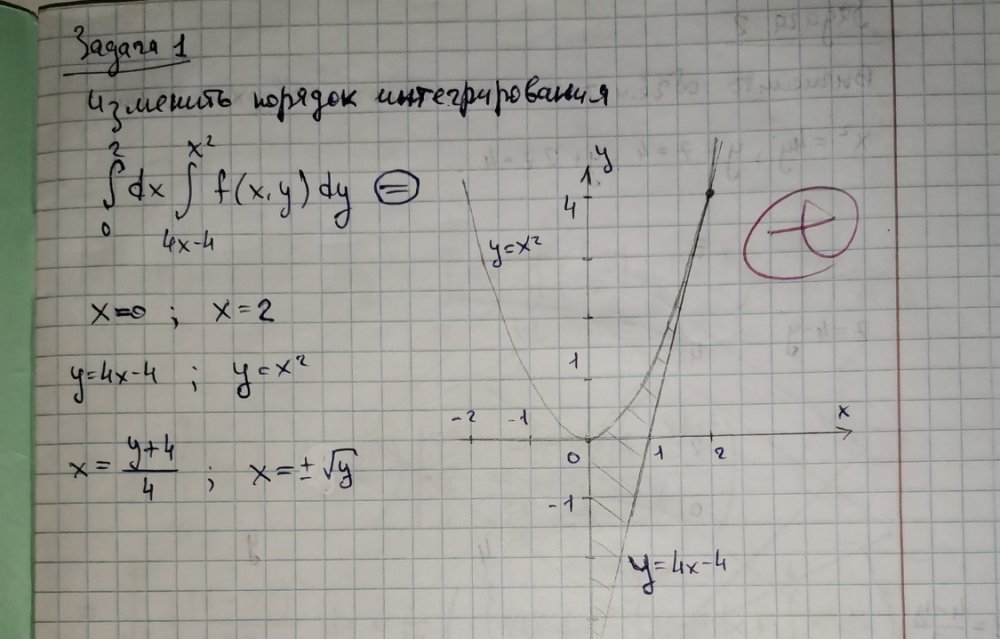 Задача 1
Изменить порядок интегрирования
2 x²
∫ dx ∫ f(x, y) dy =
0 4x-4
x=0 ; x=2
y=4x-4 ; y=x²
x = (y+4)/4 ; x=±√y
y
4
y=x²
1
-2 -1 0 1 2 x
-1
y=4x-4
+